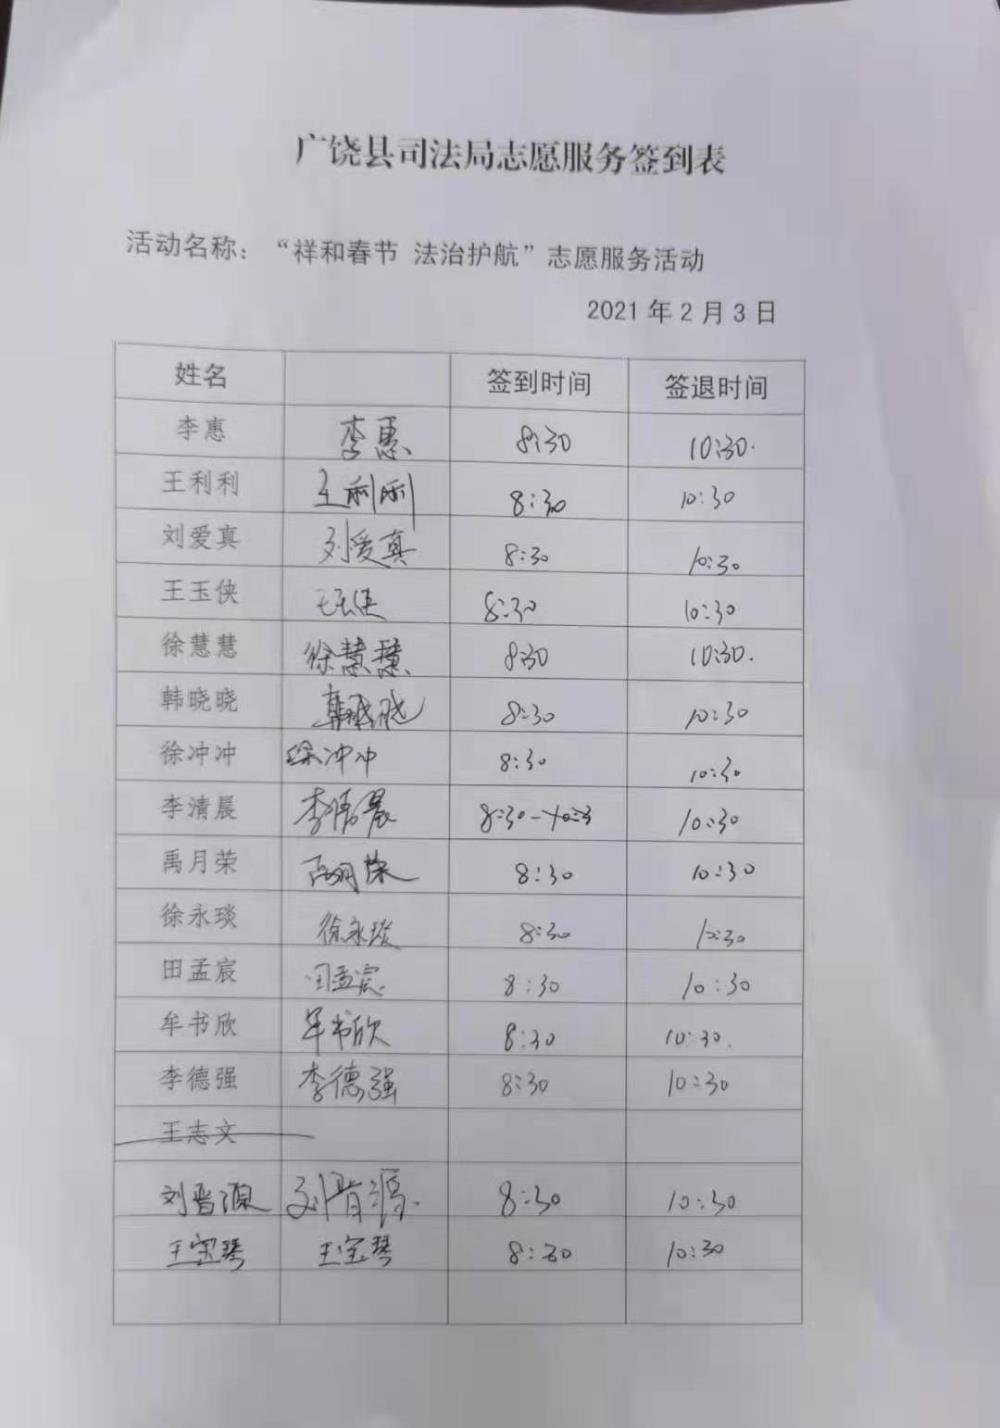 广饶县司法局志愿服务签到表
活动名称：“祥和春节 法治护航”志愿服务活动
2021 年 2 月 3 日
姓名 签到时间 签退时间
李惠 李惠 8:30 10:30.
王利利 王利利 8:30 10:30
刘爱真 刘爱真 8:30 10:30
王玉侠 王玉侠 8:30 10:30
徐慧慧 徐慧慧 8:30 10:30.
韩晓晓 韩晓晓 8:30 10:30
徐冲冲 徐冲冲 8:30 10:30
李清晨 李清晨 8:30 10:30
禹月荣 禹月荣 8:30 10:30
徐永琰 徐永琰 8:30 10:30
田孟宸 田孟宸 8:30 10:30
牟书欣 牟书欣 8:30 10:30.
李德强 李德强 8:30 10:30
王志文
刘晋源 刘晋源. 8:30 10:30
王宝琴 王宝琴 8:30 10:30